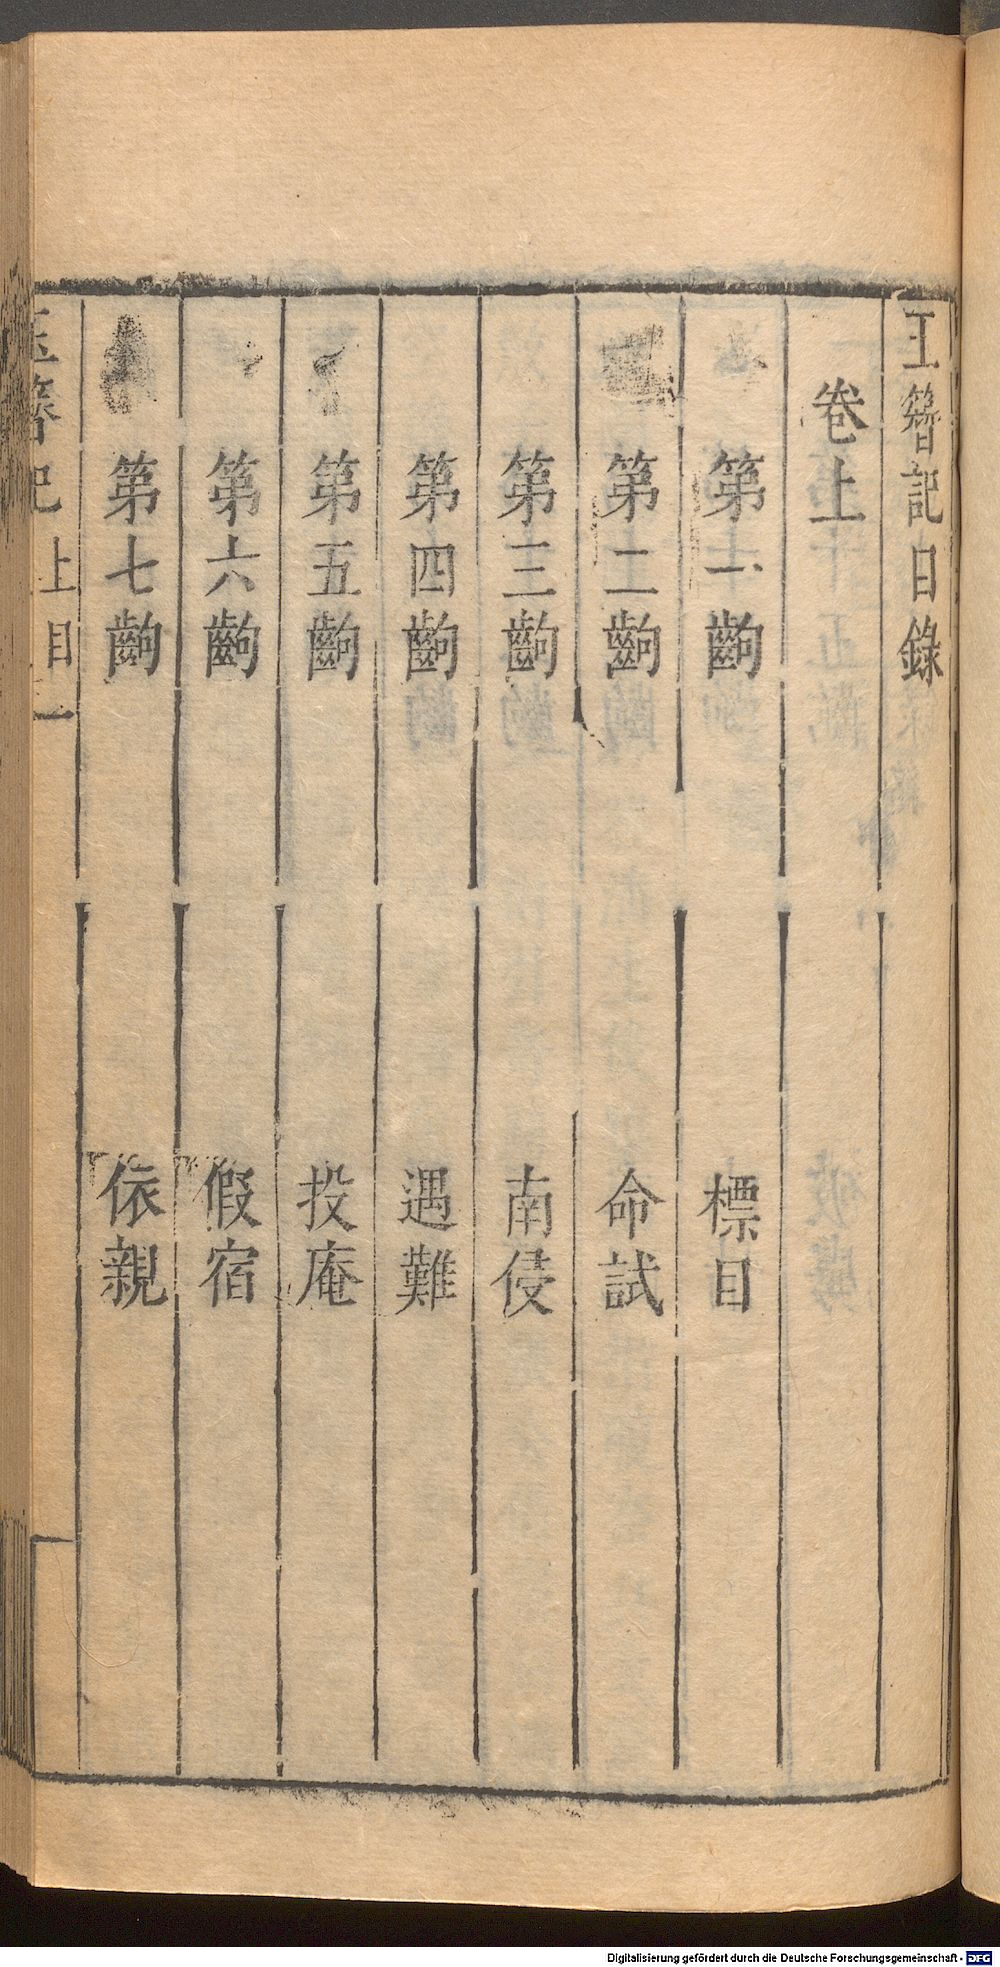 玉簪記目錄
卷上
第一齣 標目
第二齣 命試
第三齣 南侵
第四齣 遇難
第五齣 投庵
第六齣 假宿
第七齣 依親
玉簪記 上目 一
Digitalisierung gefördert durch die Deutsche Forschungsgemeinschaft - DFG